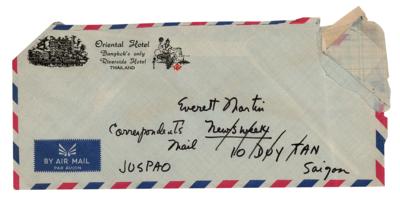 Oriental Hotel
Bangkok's only
Riverside Hotel
THAILAND
Everett Martin
Correspondents Newsweek
Mail 10 DUY TAN
JUSPAO Saigon
BY AIR MAIL
PAR AVION